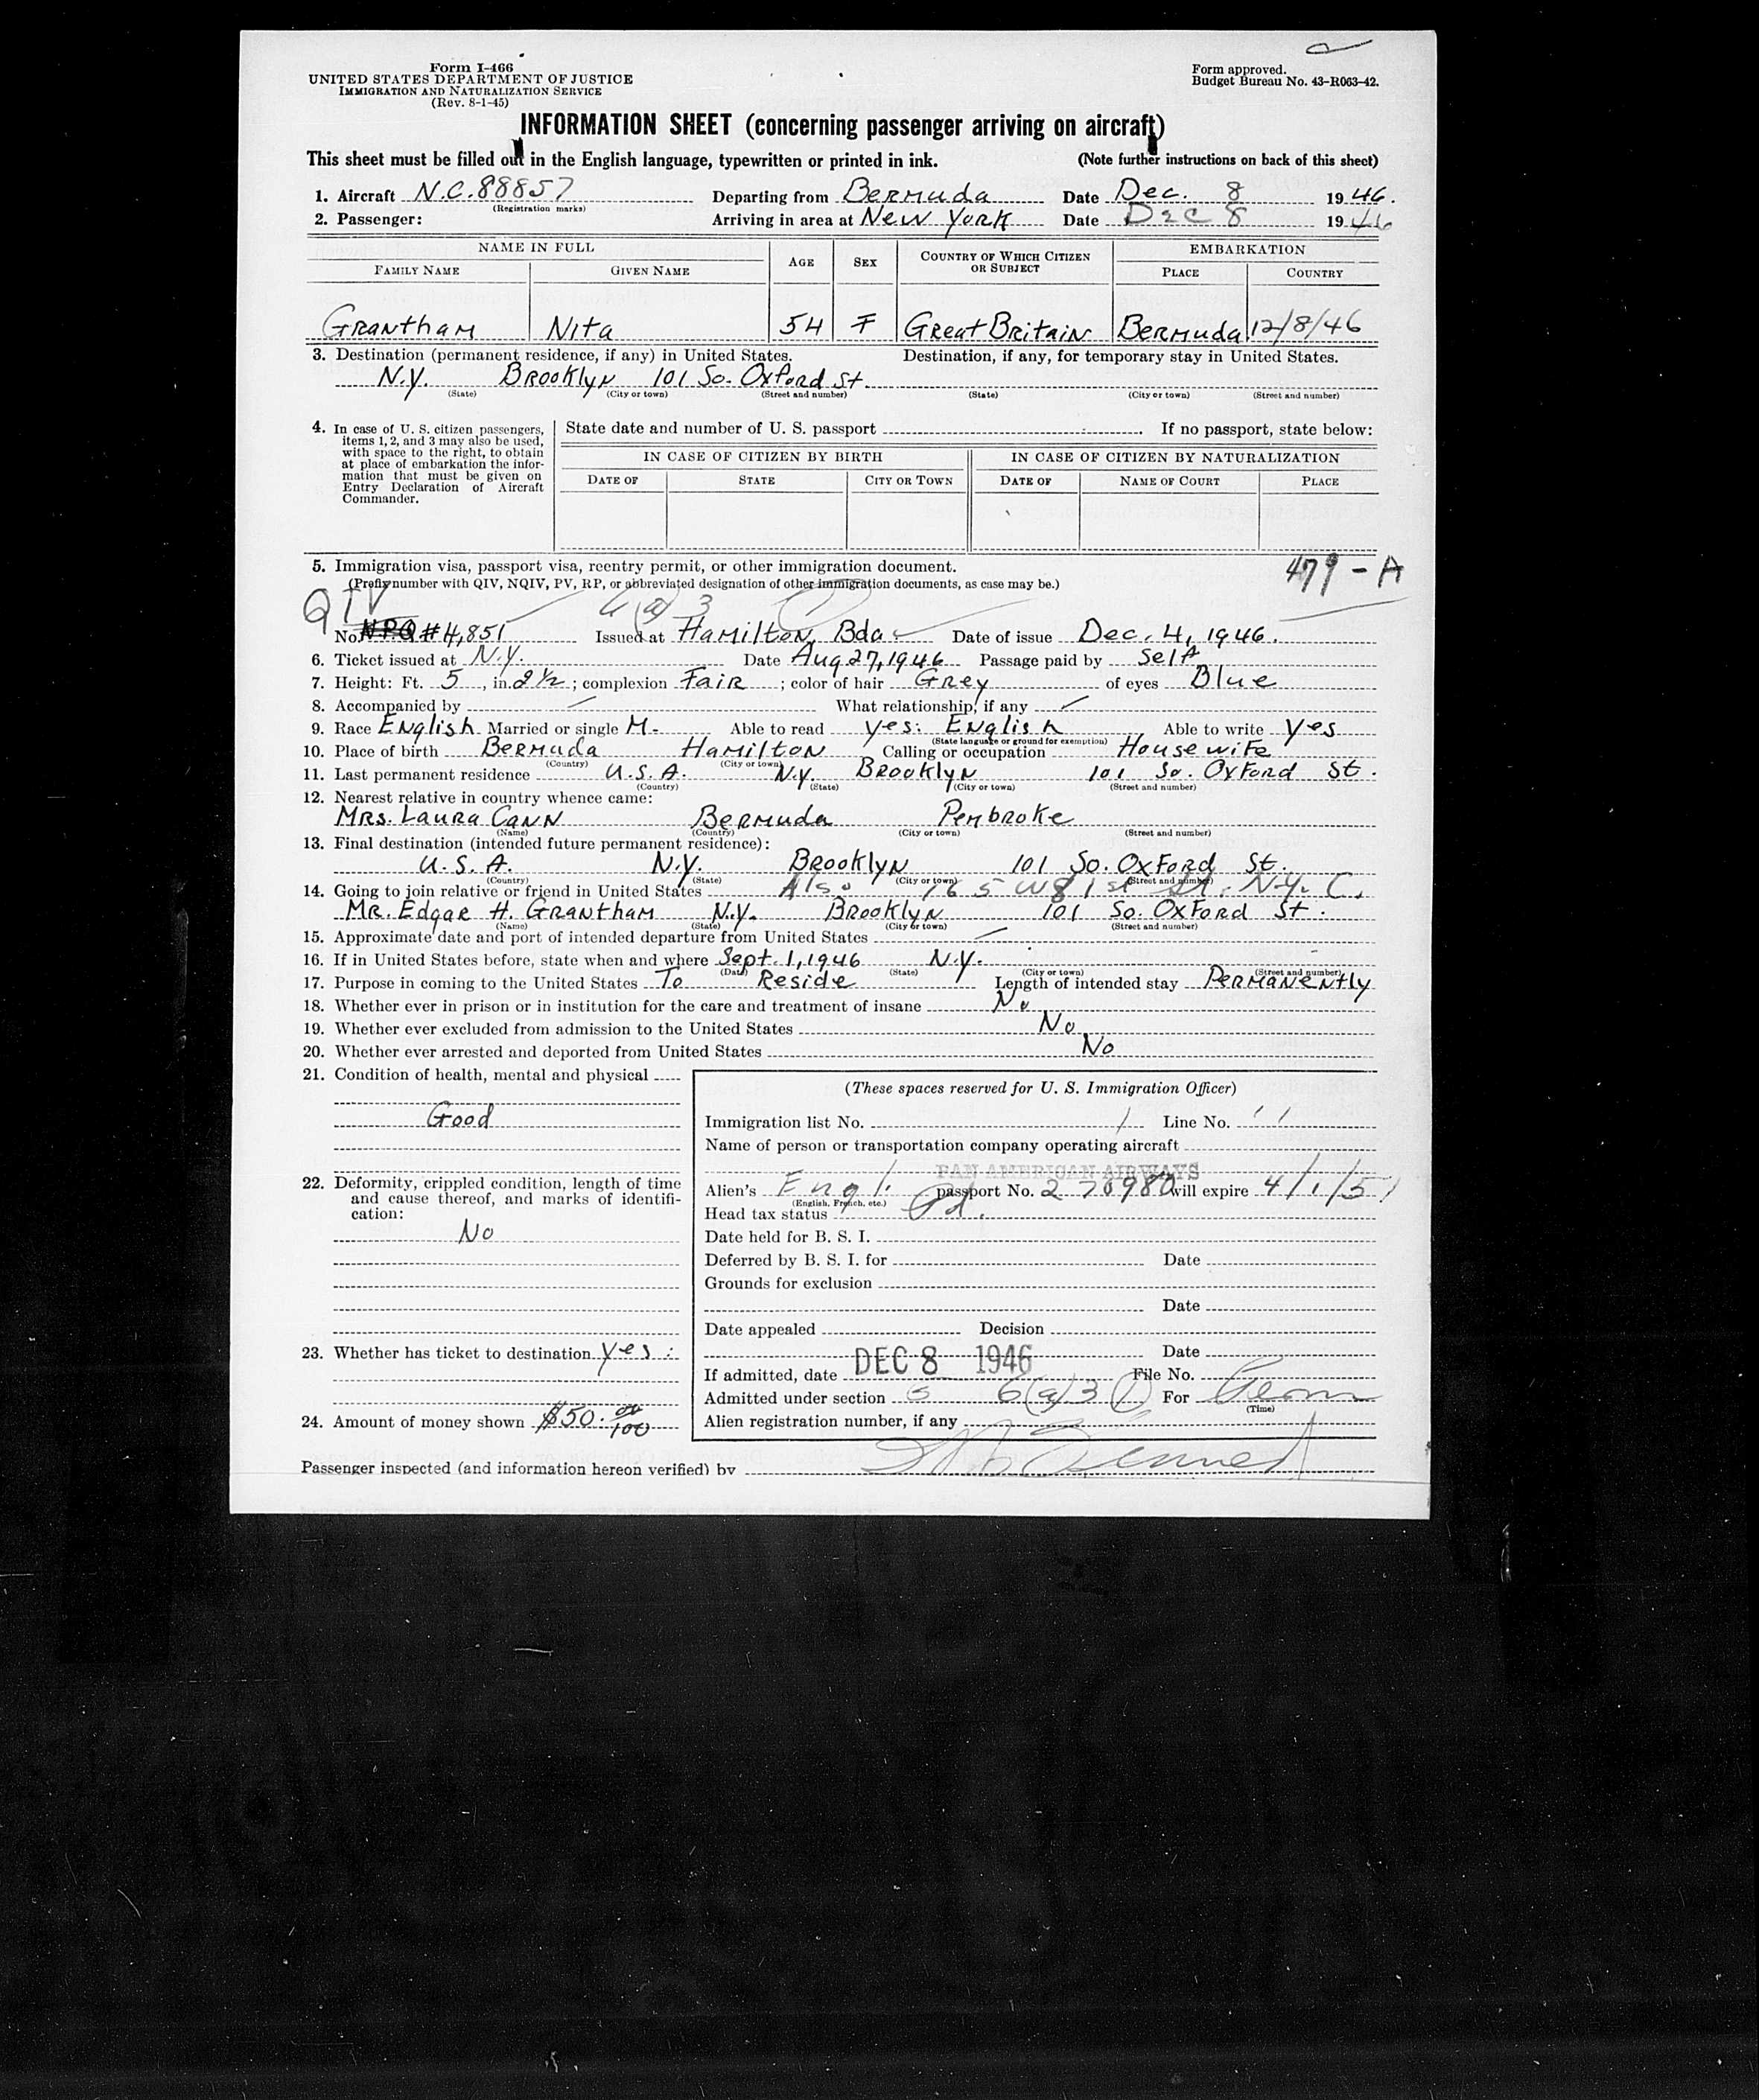 Form I-466
UNITED STATES DEPARTMENT OF JUSTICE
IMMIGRATION AND NATURALIZATION SERVICE
(Rev. 8-1-45)
Form approved.
Budget Bureau No. 43-R063-42.
INFORMATION SHEET (concerning passenger arriving on aircraft)
This sheet must be filled out in the English language, typewritten or printed in ink. (Note further instructions on back of this sheet)
1. Aircraft N.C. 88857 Departing from Bermuda Date Dec. 8 1946.
(Registration marks)
2. Passenger: Arriving in area at New York Date Dec 8 1946
NAME IN FULL AGE SEX COUNTRY OF WHICH CITIZEN OR SUBJECT EMBARKATION
FAMILY NAME GIVEN NAME PLACE COUNTRY
Grantham Nita 54 F Great Britain Bermuda 12/8/46
3. Destination (permanent residence, if any) in United States. Destination, if any, for temporary stay in United States.
N.Y. Brooklyn 101 So. Oxford St.
(State) (City or town) (Street and number) (State) (City or town) (Street and number)
4. In case of U. S. citizen passengers, items 1, 2, and 3 may also be used, with space to the right, to obtain at place of embarkation the information that must be given on Entry Declaration of Aircraft Commander.
State date and number of U. S. passport If no passport, state below:
IN CASE OF CITIZEN BY BIRTH IN CASE OF CITIZEN BY NATURALIZATION
DATE OF STATE CITY OR TOWN DATE OF NAME OF COURT PLACE
5. Immigration visa, passport visa, reentry permit, or other immigration document. 479-A
(Prefix number with QIV, NQIV, PV, RP, or abbreviated designation of other immigration documents, as case may be.)
QIV 6(a)3 (1)
No. #4,851 Issued at Hamilton, Bda Date of issue Dec. 4, 1946.
6. Ticket issued at N.Y. Date Aug 27, 1946 Passage paid by Self
7. Height: Ft. 5, in. 2 1/2; complexion Fair; color of hair Grey of eyes Blue
8. Accompanied by What relationship, if any
9. Race English Married or single M. Able to read yes: English Able to write yes
(State language or ground for exemption)
10. Place of birth Bermuda Hamilton Calling or occupation Housewife
(Country) (City or town)
11. Last permanent residence U.S.A. N.Y. Brooklyn 101 So. Oxford St.
(Country) (State) (City or town) (Street and number)
12. Nearest relative in country whence came:
Mrs. Laura Cann Bermuda Pembroke
(Name) (Country) (City or town) (Street and number)
13. Final destination (intended future permanent residence):
U.S.A. N.Y. Brooklyn 101 So. Oxford St.
(Country) (State) (City or town) (Street and number)
14. Going to join relative or friend in United States Also 165 W 81st St. N.Y.C.
Mr. Edgar H. Grantham N.Y. Brooklyn 101 So. Oxford St.
(Name) (State) (City or town) (Street and number)
15. Approximate date and port of intended departure from United States
16. If in United States before, state when and where Sept. 1, 1946 N.Y.
(Date) (State) (City or town) (Street and number)
17. Purpose in coming to the United States To Reside Length of intended stay Permanently
18. Whether ever in prison or in institution for the care and treatment of insane No
19. Whether ever excluded from admission to the United States No
20. Whether ever arrested and deported from United States No
21. Condition of health, mental and physical
Good
22. Deformity, crippled condition, length of time and cause thereof, and marks of identification:
No
23. Whether has ticket to destination yes:
24. Amount of money shown $50.00/100
(These spaces reserved for U. S. Immigration Officer)
Immigration list No. 1 Line No. 11
Name of person or transportation company operating aircraft
PAN AMERICAN AIRWAYS
Alien's Engl. passport No. 270980 will expire 4/1/51
(English, French, etc.)
Head tax status Pd.
Date held for B. S. I.
Deferred by B. S. I. for Date
Grounds for exclusion
Date
Date appealed Decision
Date
If admitted, date DEC 8 1946 File No.
Admitted under section 6(a)3 (1) For Perm
(Time)
Alien registration number, if any
Passenger inspected (and information hereon verified) by